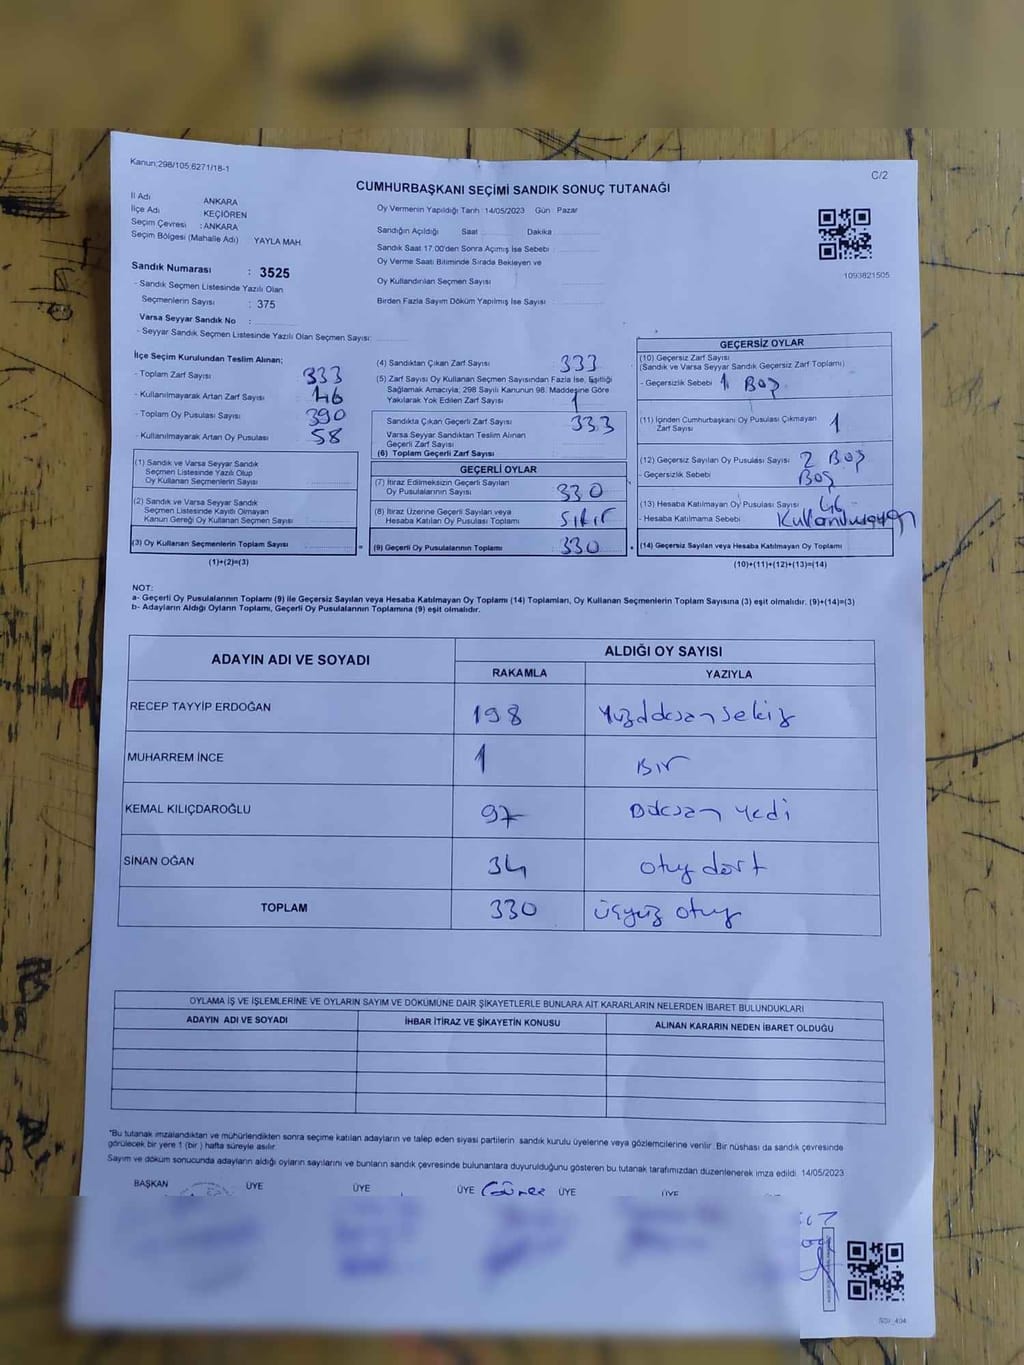 Kanun;298/105,6271/18-1
C/2
CUMHURBAŞKANI SEÇİMİ SANDIK SONUÇ TUTANAĞI
İl Adı ANKARA
İlçe Adı KEÇİÖREN
Seçim Çevresi : ANKARA
Seçim Bölgesi (Mahalle Adı) YAYLA MAH.
Oy Vermenin Yapıldığı Tarih :14/05/2023 Gün : Pazar
Sandığın Açıldığı Saat Dakika
Sandık Saat 17.00'den Sonra Açımış İse Sebebi
Oy Verme Saati Bitiminde Sırada Bekleyen ve
Oy Kullandırılan Seçmen Sayısı
Birden Fazla Sayım Döküm Yapılmış İse Sayısı
1093821505
Sandık Numarası : 3525
- Sandık Seçmen Listesinde Yazılı Olan
Seçmenlerin Sayısı : 375
Varsa Seyyar Sandık No :
- Seyyar Sandık Seçmen Listesinde Yazılı Olan Seçmen Sayısı:
İlçe Seçim Kurulundan Teslim Alınan;
- Toplam Zarf Sayısı 333
- Kullanılmayarak Artan Zarf Sayısı 146
- Toplam Oy Pusulası Sayısı 390
- Kullanılmayarak Artan Oy Pusulası 58
(1) Sandık ve Varsa Seyyar Sandık
Seçmen Listesinde Yazılı Olup
Oy Kullanan Seçmenlerin Sayısı
(2) Sandık ve Varsa Seyyar Sandık
Seçmen Listesinde Kayıtlı Olmayan
Kanun Gereği Oy Kullanan Seçmen Sayısı
(3) Oy Kullanan Seçmenlerin Toplam Sayısı
=
(1)+(2)=(3)
(4) Sandıktan Çıkan Zarf Sayısı 333
(5) Zarf Sayısı Oy Kullanan Seçmen Sayısından Fazla İse, Eşitliği
Sağlamak Amacıyla; 298 Sayılı Kanunun 98. Maddesine Göre
Yakılarak Yok Edilen Zarf Sayısı 1
Sandıkta Çıkan Geçerli Zarf Sayısı 333
Varsa Seyyar Sandıktan Teslim Alınan
Geçerli Zarf Sayısı
(6) Toplam Geçerli Zarf Sayısı
GEÇERLİ OYLAR
(7) İtiraz Edilmeksizin Geçerli Sayılan
Oy Pusulalarının Sayısı 330
(8) İtiraz Üzerine Geçerli Sayılan veya
Hesaba Katılan Oy Pusulası Toplamı sıfır
(9) Geçerli Oy Pusulalarının Toplamı 330
GEÇERSİZ OYLAR
(10) Geçersiz Zarf Sayısı
(Sandık ve Varsa Seyyar Sandık Geçersiz Zarf Toplamı)
- Geçersizlik Sebebi 1 Boş
(11) İçinden Cumhurbaşkanı Oy Pusulası Çıkmayan
Zarf Sayısı 1
(12) Geçersiz Sayılan Oy Pusulası Sayısı 2 Boş
- Geçersizlik Sebebi Boş
(13) Hesaba Katılmayan Oy Pusulası Sayısı 46
- Hesaba Katılmama Sebebi
(14) Geçersiz Sayılan veya Hesaba Katılmayan Oy Toplamı
(10)+(11)+(12)+(13)=(14)
NOT:
a- Geçerli Oy Pusulalarının Toplamı (9) ile Geçersiz Sayılan veya Hesaba Katılmayan Oy Toplamı (14) Toplamları, Oy Kullanan Seçmenlerin Toplam Sayısına (3) eşit olmalıdır. (9)+(14)=(3)
b- Adayların Aldığı Oyların Toplamı, Geçerli Oy Pusulalarının Toplamına (9) eşit olmalıdır.
ADAYIN ADI VE SOYADI ALDIĞI OY SAYISI
RAKAMLA YAZIYLA
RECEP TAYYİP ERDOĞAN 198 Yüzdoksansekiz
MUHARREM İNCE 1 Bir
KEMAL KILIÇDAROĞLU 97 Doksan yedi
SİNAN OĞAN 34 otuz dört
TOPLAM 330 üçyüz otuz
OYLAMA İŞ VE İŞLEMLERİNE VE OYLARIN SAYIM VE DÖKÜMÜNE DAİR ŞİKAYETLERLE BUNLARA AİT KARARLARIN NELERDEN İBARET BULUNDUKLARI
ADAYIN ADI VE SOYADI İHBAR İTİRAZ VE ŞİKAYETİN KONUSU ALINAN KARARIN NEDEN İBARET OLDUĞU
*Bu tutanak imzalandıktan ve mühürlendikten sonra seçime katılan adayların ve talep eden siyasi partilerin sandık kurulu üyelerine veya gözlemcilerine verilir. Bir nüshası da sandık çevresinde
görülecek bir yere 1 (bir ) hafta süreyle asılır.
Sayım ve döküm sonucunda adayların aldığı oyların sayılarını ve bunların sandık çevresinde bulunanlara duyurulduğunu gösteren bu tutanak tarafımızdan düzenlenerek imza edildi. 14/05/2023
BAŞKAN ÜYE ÜYE ÜYE ÜYE ÜYE